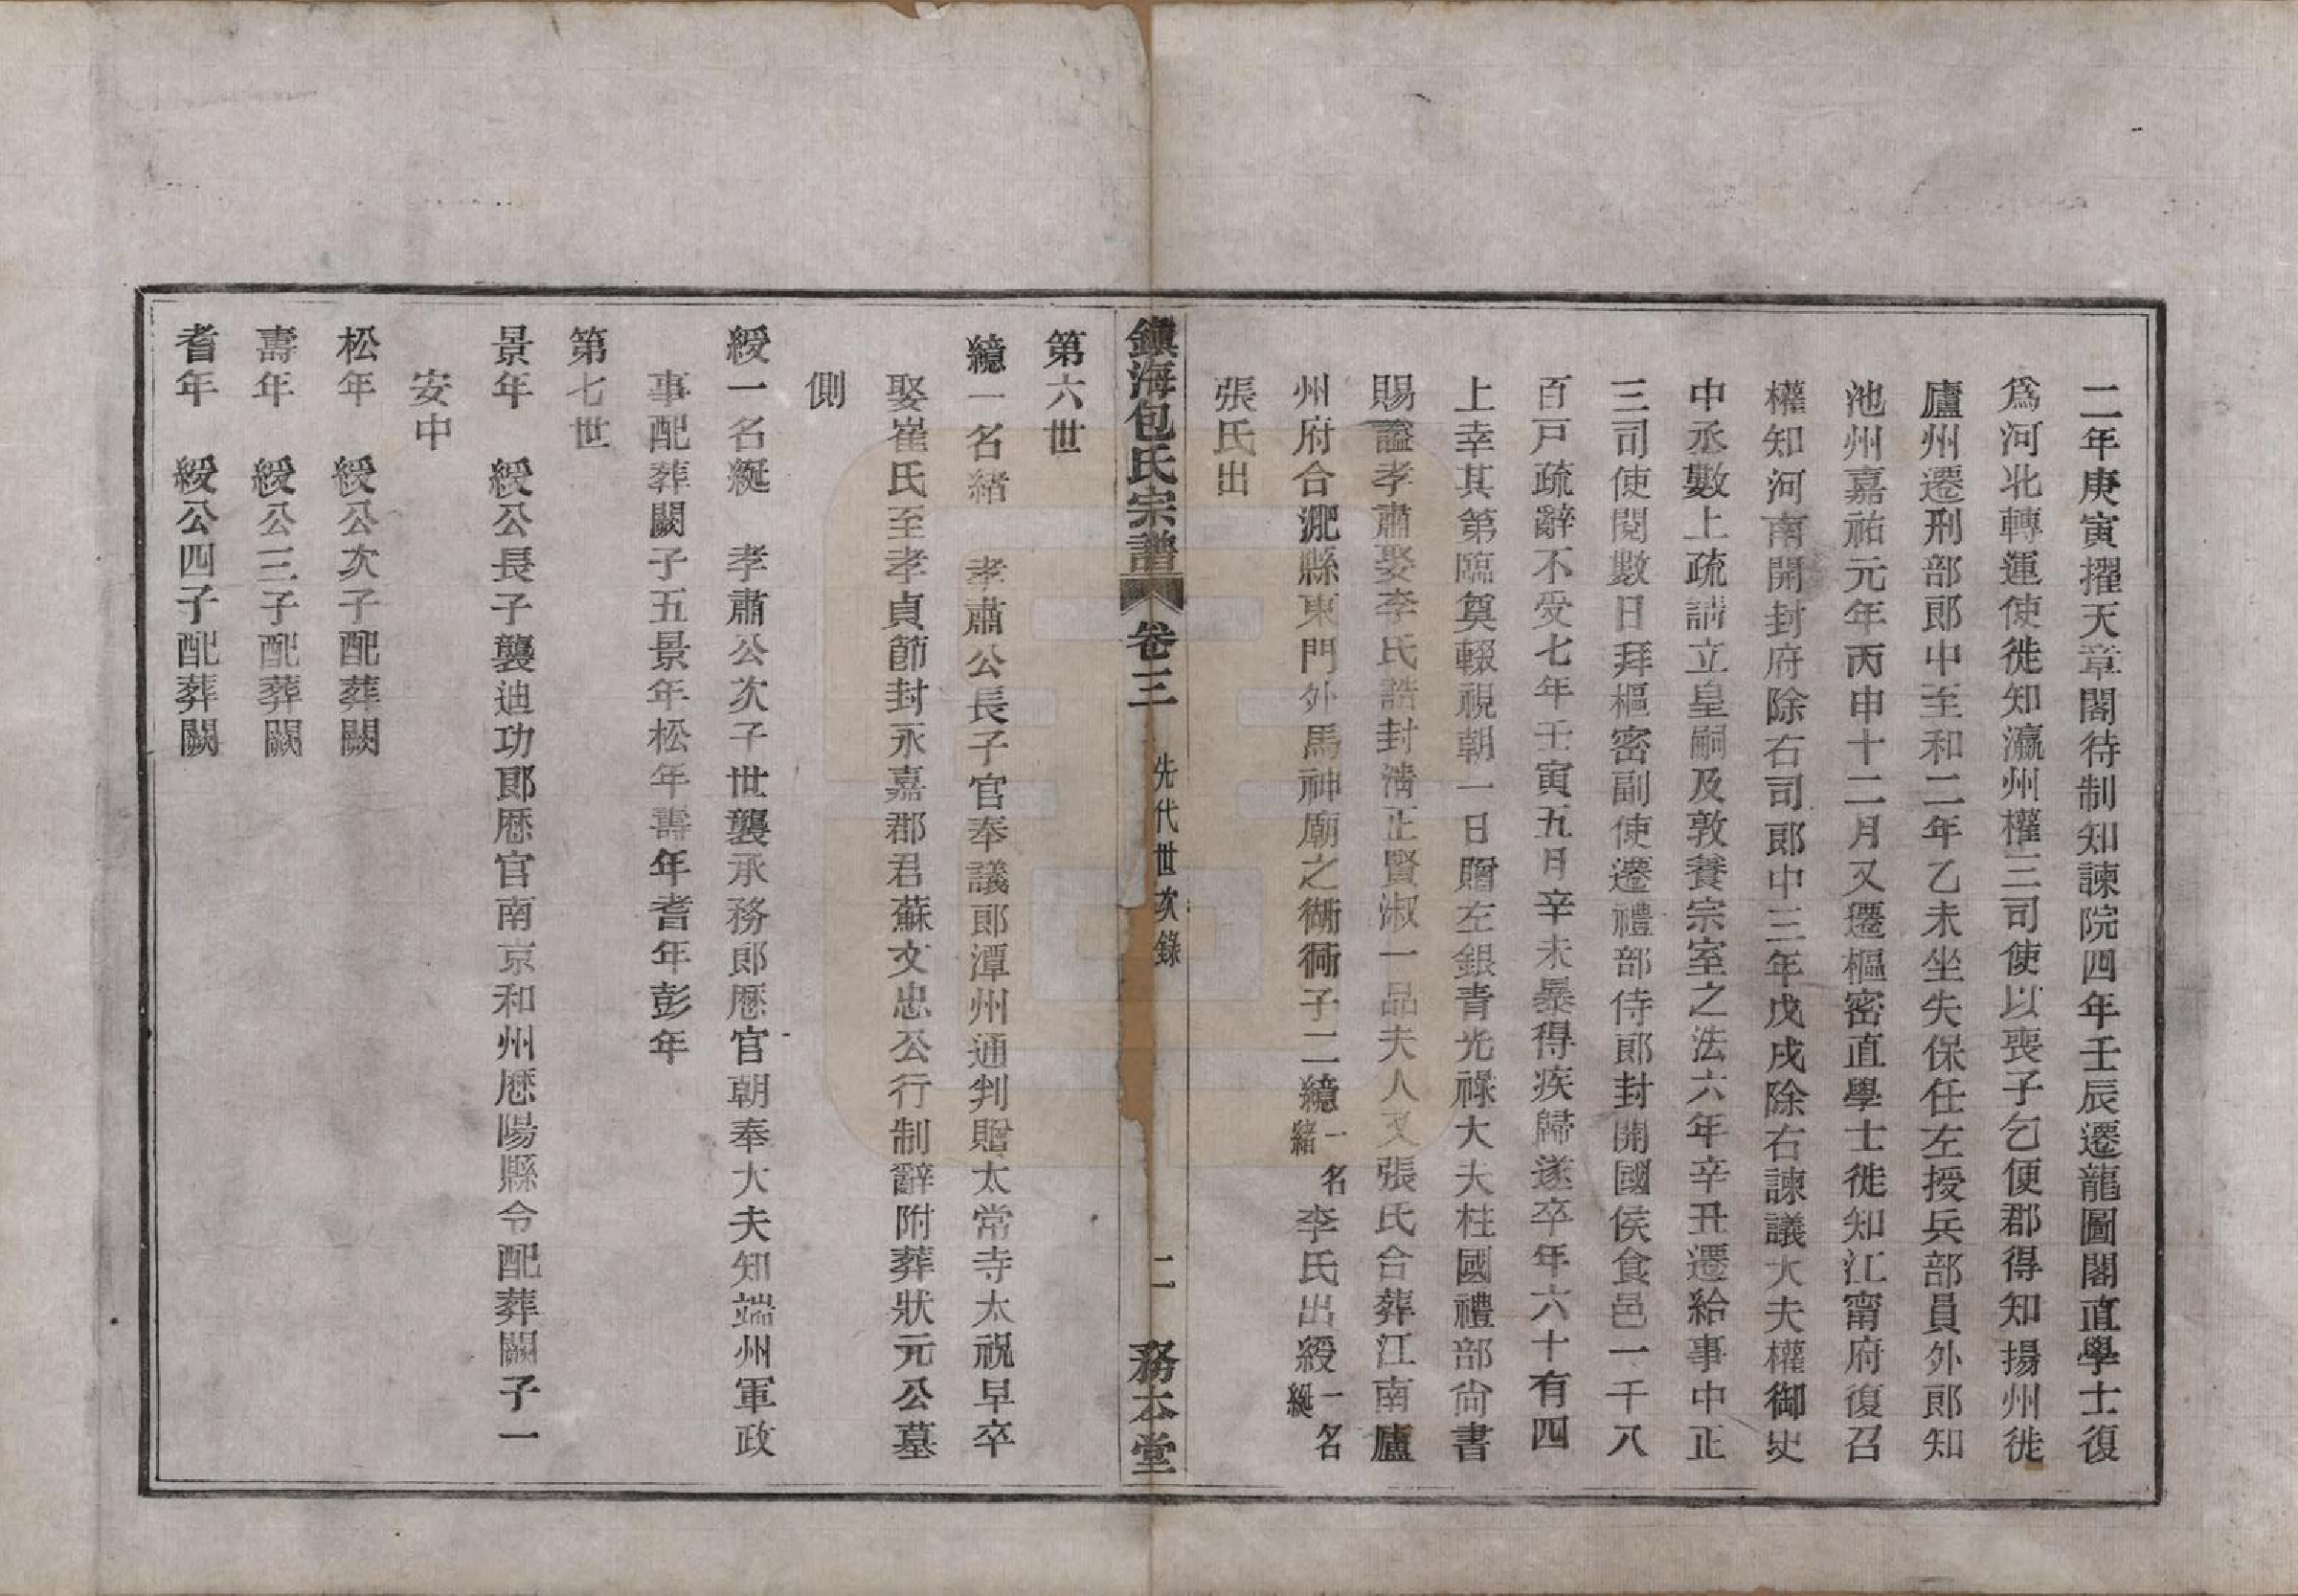 二年庚寅擢天章閣待制知諫院四年壬辰遷龍圖閣直學士復
爲河北轉運使徙知瀛州權三司使以喪子乞便郡得知揚州徙
廬州遷刑部郎中至和二年乙未坐失保任左授兵部員外郎知
池州嘉祐元年丙申十二月又遷樞密直學士徙知江甯府復召
權知河南開封府除右司郎中三年戊戌除右諫議大夫權御史
中丞數上疏請立皇嗣及敦養宗室之法六年辛丑遷給事中正
三司使閱數日拜樞密副使遷禮部侍郎封開國侯食邑一千八
百戸疏辭不受七年壬寅五月辛未暴得疾歸遂卒年六十有四
上幸其第臨奠輟視朝一日贈左銀青光祿大夫柱國禮部尙書
賜諡孝肅娶李氏誥封淸正賢淑一品夫人又張氏合葬江南廬
州府合淝縣東門外馬神廟之衚衕子二繶一名緒李氏出綬一名綖
張氏出
鎭海包氏宗譜 卷三 先代世次錄 二 務本堂
第六世
繶一名緒 孝肅公長子官奉議郎潭州通判贈太常寺太祝早卒
娶崔氏至孝貞節封永嘉郡君蘇文忠公行制辭附葬狀元公墓
側
綬一名綖 孝肅公次子世襲承務郎歷官朝奉大夫知端州軍政
事配葬闕子五景年松年壽年耆年彭年
第七世
景年 綬公長子襲迪功郎歷官南京和州歷陽縣令配葬闕子一
安中
松年 綬公次子配葬闕
壽年 綬公三子配葬闕
耆年 綬公四子配葬闕